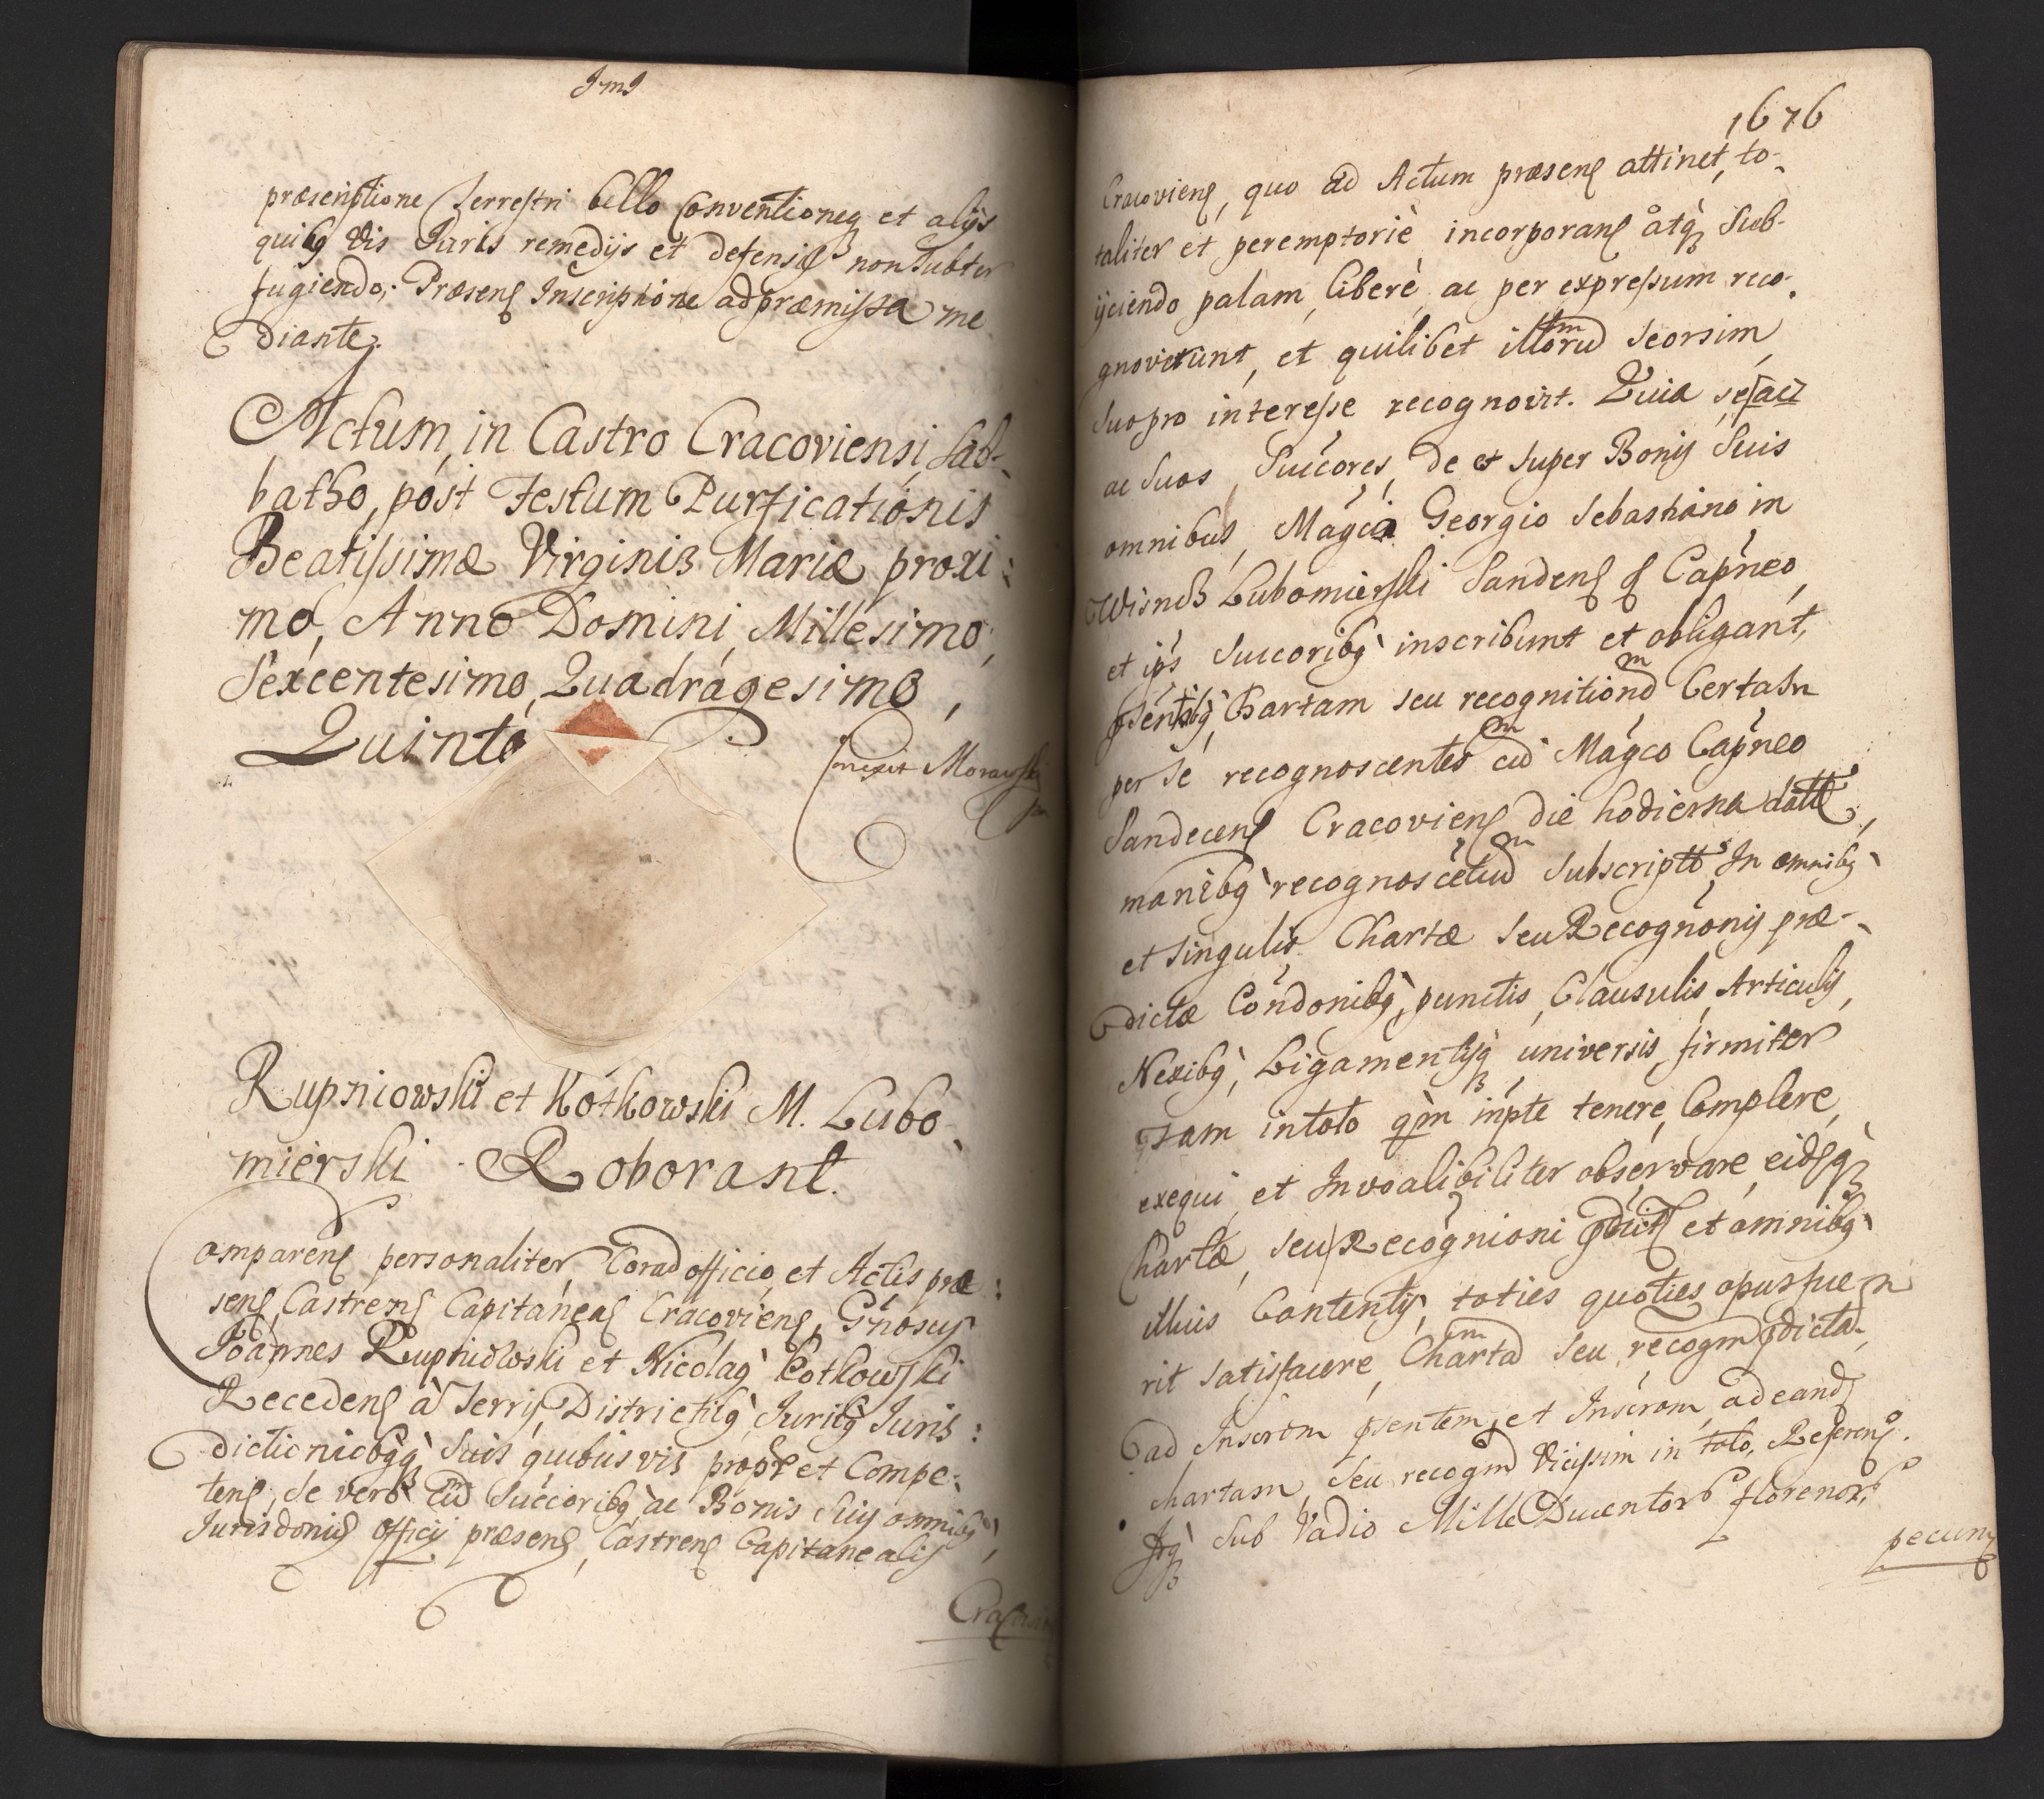 JmJ
præscriptione Terrestri bello Conventioneq et alijs
quibq vis Juris remedijs et defensis non subter
fugiendo; Præsenς Inscriptione ad præmissa me
diante.
Actum, in Castro Cracoviensi, Sab-
batho, post Festum Purificationis
Beatissimæ Virginis Mariæ proxi:
mo, Anno Domini, Millesimo,
Sexcentesimo, Quadragesimo,
Quinto
Correxit Morawski
Rupniowski et Kotkowski M. Lubo-
mierski Roborant.
Comparenς personaliter, Corad officio, et Actis præ:
senς, Castrenς Capitaneaς Cracovienς, Gnosus
Joannes Rupniowski et Nicolaq Kotkowski
Recedenς à Terris, Districtibq, Juribq Juris:
dictionibqq suis quibusvis propr et Compe:
tenς, se vero cu Succoribq ac Bonis suis omnibq,
Jurisdonis officij præsenς, Castrenς Capitanealis
1676
Cracovienς, quo ad Actum præsenς attinet, to-
taliter et peremptoriè incorporanς atq Sub-
ijciendo palam, liberè ac per expressum reco-
gnoverunt, et quilibet illorum seorsim
suo pro interesse recognovit. Quia se
ac suos Succores, de et super Bonis Suis
omnibus, Magco Georgio Sebastiano in
Wisnicz Lubomierski Sandenς Capneo,
et ips Succoribq inscribunt et obligant,
Chartam seu recognitionem Certam
per se recognoscentes cum Magco Capneo
Sandecenς Cracovienς die hodierna datt,
manibq recognoscetium subscriptt. In omnibq
et singulis Chartæ seu Recognonis præ-
dictæ Condonibq, punctis, Clausulis, Articulis,
Nexibq, Ligamentisq universis, firmiter
tam in toto qm in pte tenere, Complere,
exequi, et Invoalibiliter observare, eidq
Chartæ, seu Recognioni pdict et omnibq
illius Contentis, toties quoties opus fue
rit satisfacere, Chartam seu recogm pdictam,
ad Inscrom psentem, et Inscrom ad eand
chartam seu recogm vicissim in toto, Referenς.
Itq sub Vadio Mille Ducentor florenor,
pecun